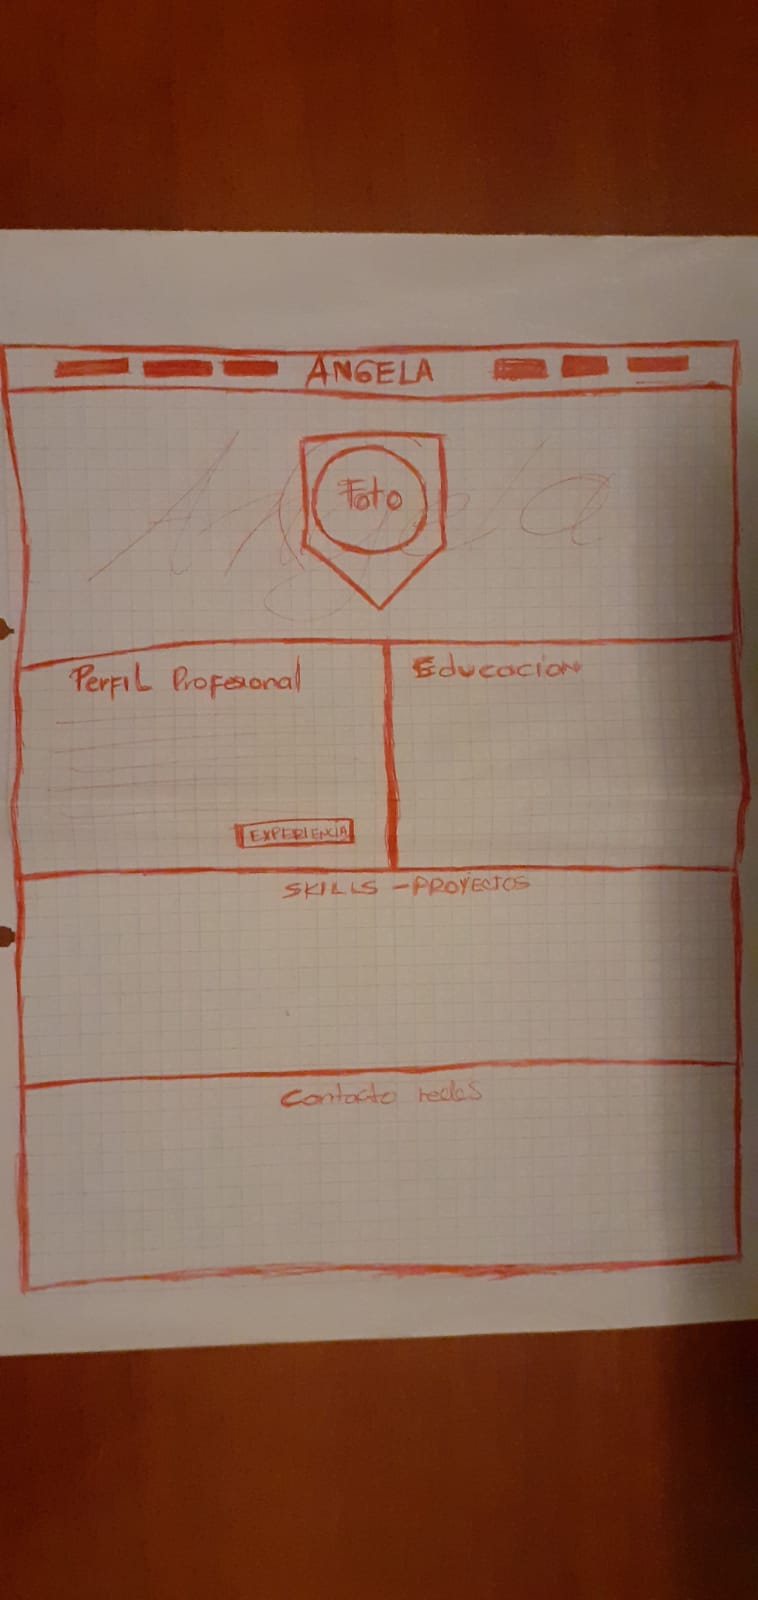 ANGELA
Angela
Foto
Perfil Profesional
Educacion
EXPERIENCIA
SKILLS - PROYECTOS
Contacto redes